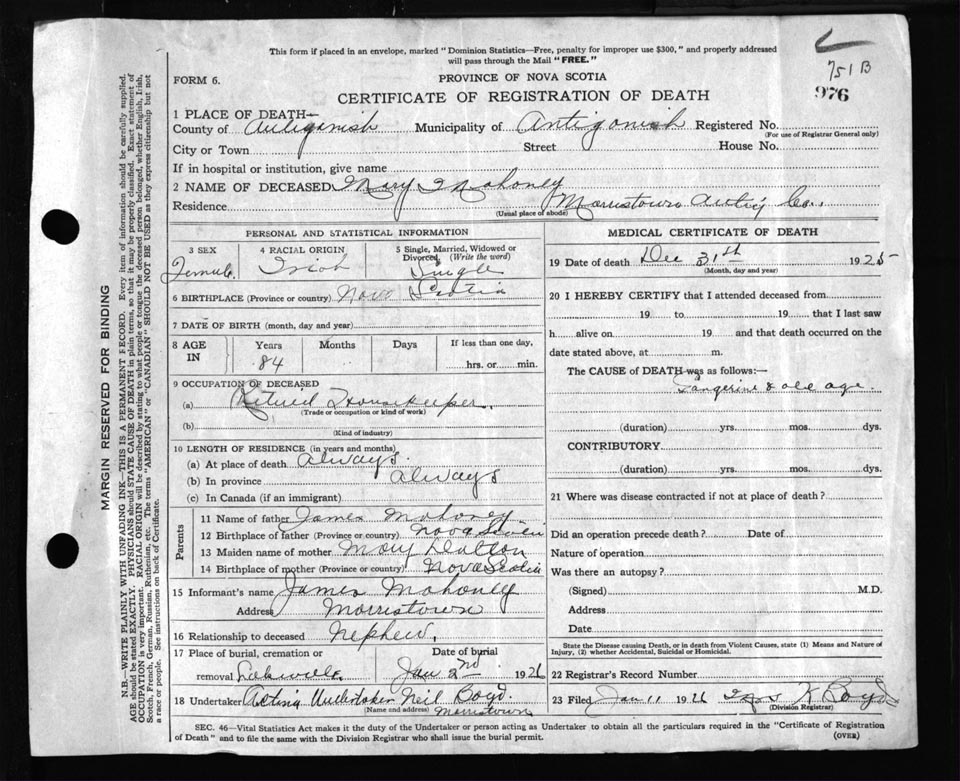 This form if placed in an envelope, marked "Dominion Statistics—Free, penalty for improper use $300," and properly addressed
will pass through the Mail "FREE."
751B
976
FORM 6.
PROVINCE OF NOVA SCOTIA
CERTIFICATE OF REGISTRATION OF DEATH
1 PLACE OF DEATH—
County of Antigonish Municipality of Antigonish Registered No.
(For use of Registrar General only)
City or Town Street House No.
If in hospital or institution, give name
2 NAME OF DECEASED Mary Mahoney
Residence Morristown Antig Co.,
(Usual place of abode)
PERSONAL AND STATISTICAL INFORMATION
3 SEX
Female
4 RACIAL ORIGIN
Irish
5 Single, Married, Widowed or
Divorced (Write the word)
Single
6 BIRTHPLACE (Province or country) Nova Scotia
7 DATE OF BIRTH (month, day and year)
8 AGE IN
Years Months Days If less than one day,
84 hrs. or min.
9 OCCUPATION OF DECEASED
(a) Retired Housekeeper.
(Trade or occupation or kind of work)
(b)
(Kind of industry)
10 LENGTH OF RESIDENCE (in years and months)
(a) At place of death always.
(b) In province always
(c) In Canada (if an immigrant)
Parents
11 Name of father James Mahoney
12 Birthplace of father (Province or country) Nova Scotia
13 Maiden name of mother Mary Dalton
14 Birthplace of mother (Province or country) Nova Scotia
15 Informant's name James Mahoney
Address Morristown
16 Relationship to deceased Nephew.
17 Place of burial, cremation or
removal
Date of burial
Jan 2nd 1926
18 Undertaker Acting Undertaker Neil Boyd.
(Name and address) Morristown
MEDICAL CERTIFICATE OF DEATH
19 Date of death Dec 31st 1925
(Month, day and year)
20 I HEREBY CERTIFY that I attended deceased from
19 to 19 that I last saw
h alive on 19 and that death occurred on the
date stated above, at m.
The CAUSE of DEATH was as follows:—
Gangerine & old age.
(duration) yrs. mos. dys.
CONTRIBUTORY
(duration) yrs. mos. dys.
21 Where was disease contracted if not at place of death?
Did an operation precede death? Date of
Nature of operation
Was there an autopsy?
(Signed) M.D.
Address
Date
State the Disease causing Death, or in death from Violent Causes, state (1) Means and Nature of
Injury, (2) whether Accidental, Suicidal or Homicidal.
22 Registrar's Record Number
23 Filed Jan 11 1926 Boyd
(Division Registrar)
SEC. 46—Vital Statistics Act makes it the duty of the Undertaker or person acting as Undertaker to obtain all the particulars required in the "Certificate of Registration
of Death" and to file the same with the Division Registrar who shall issue the burial permit.
(OVER)
MARGIN RESERVED FOR BINDING
N.B.—WRITE PLAINLY WITH UNFADING INK—THIS IS A PERMANENT RECORD. Every item of information should be carefully supplied.
AGE should be stated EXACTLY. PHYSICIANS should STATE CAUSE OF DEATH in plain terms, so that it may be properly classified. Exact statement of
OCCUPATION is very important. RACIAL ORIGIN will be described by stating to what people or tongue the deceased person belonged, whether English, Irish,
Scotch, French, German, Russian, Ruthenian, etc. The terms "AMERICAN" or "CANADIAN" SHOULD NOT BE USED as they express citizenship but not
a race or people. See instructions on back of Certificate.